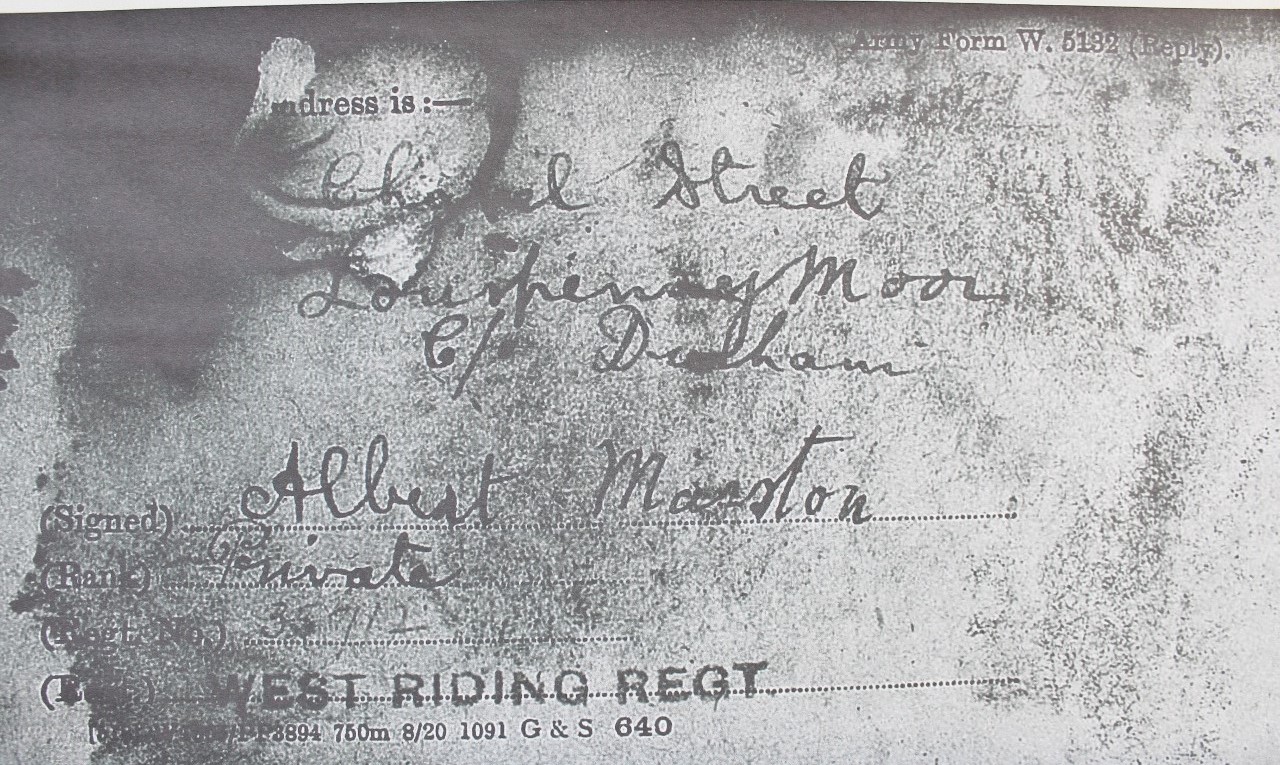 Army Form W. 5132 (Reply).
dress is :—
Chapel Street
Fourpenny Moor
C/ Durham
(Signed) Albert Marston
(Rank) Private
(Regt. No.)
WEST RIDING REGT
3894 750m 8/20 1091 G & S 640